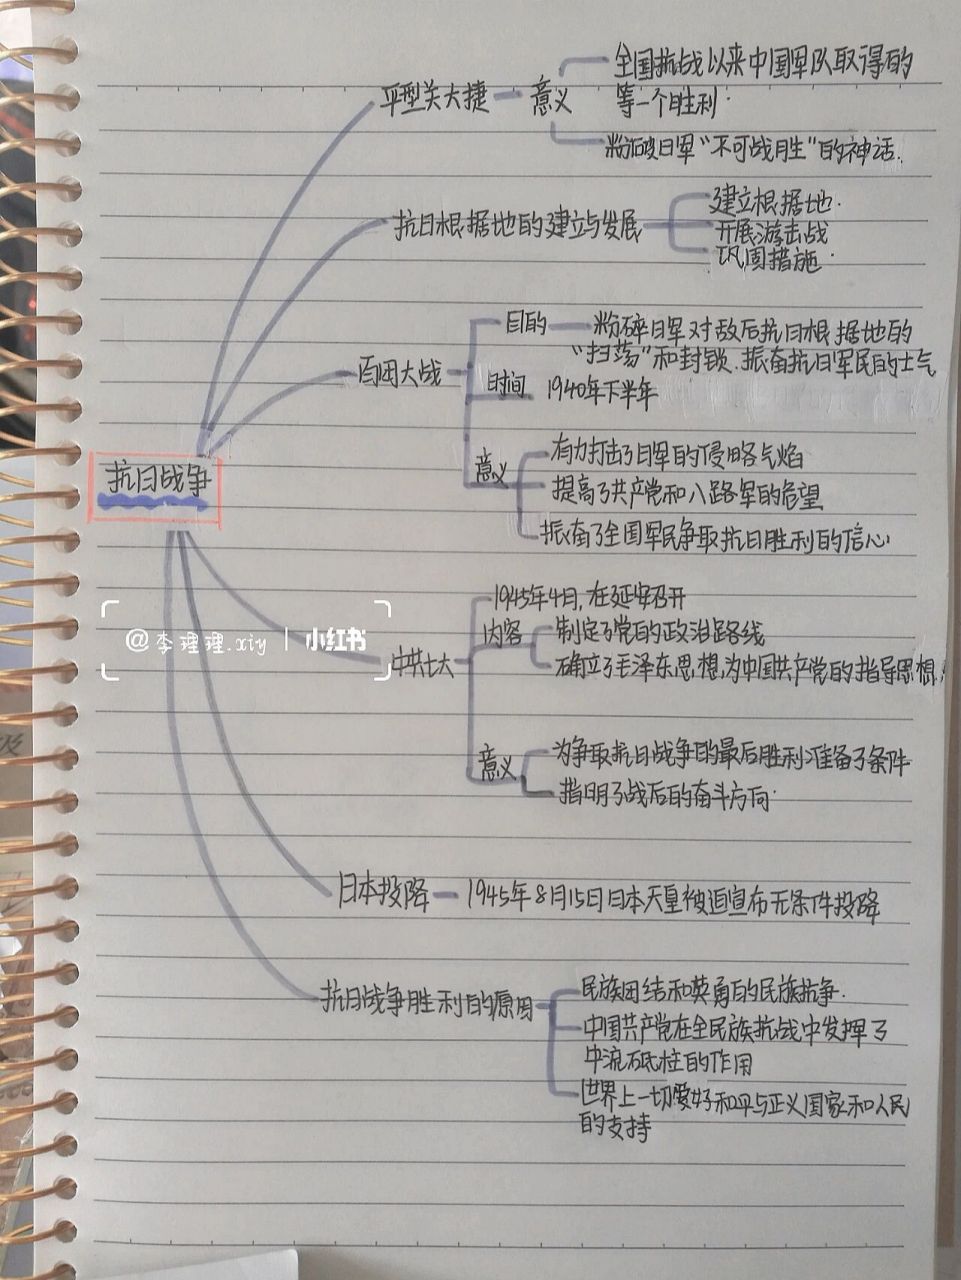 全国抗战以来中国军队取得的
平型关大捷 意义 等一个胜利.
粉碎日军“不可战胜”的神话.
建立根据地.
抗日根据地的建立与发展 开展游击战
巩固措施.
目的 粉碎日军对敌后抗日根据地的
“扫荡”和封锁.振奋抗日军民的士气
百团大战 时间 1940年下半年
有力打击了日军的侵略气焰
意义 提高了共产党和八路军的危望
抗日战争
振奋了全国军民争取抗日胜利的信心
1945年4月,在延安召开
内容 制定了党的政治路线
@李理理.xiy | 小红书
中共七大 确立了毛泽东思想,为中国共产党的指导思想,
意义 为争取抗日战争的最后胜利准备了条件
指明了战后的奋斗方向.
日本投降 1945年8月15日日本天皇被迫宣布无条件投降
抗日战争胜利的原因 民族团结和英勇的民族抗争.
中国共产党在全民族抗战中发挥了
中流砥柱的作用
世界上一切爱好和平与正义国家和人民
的支持